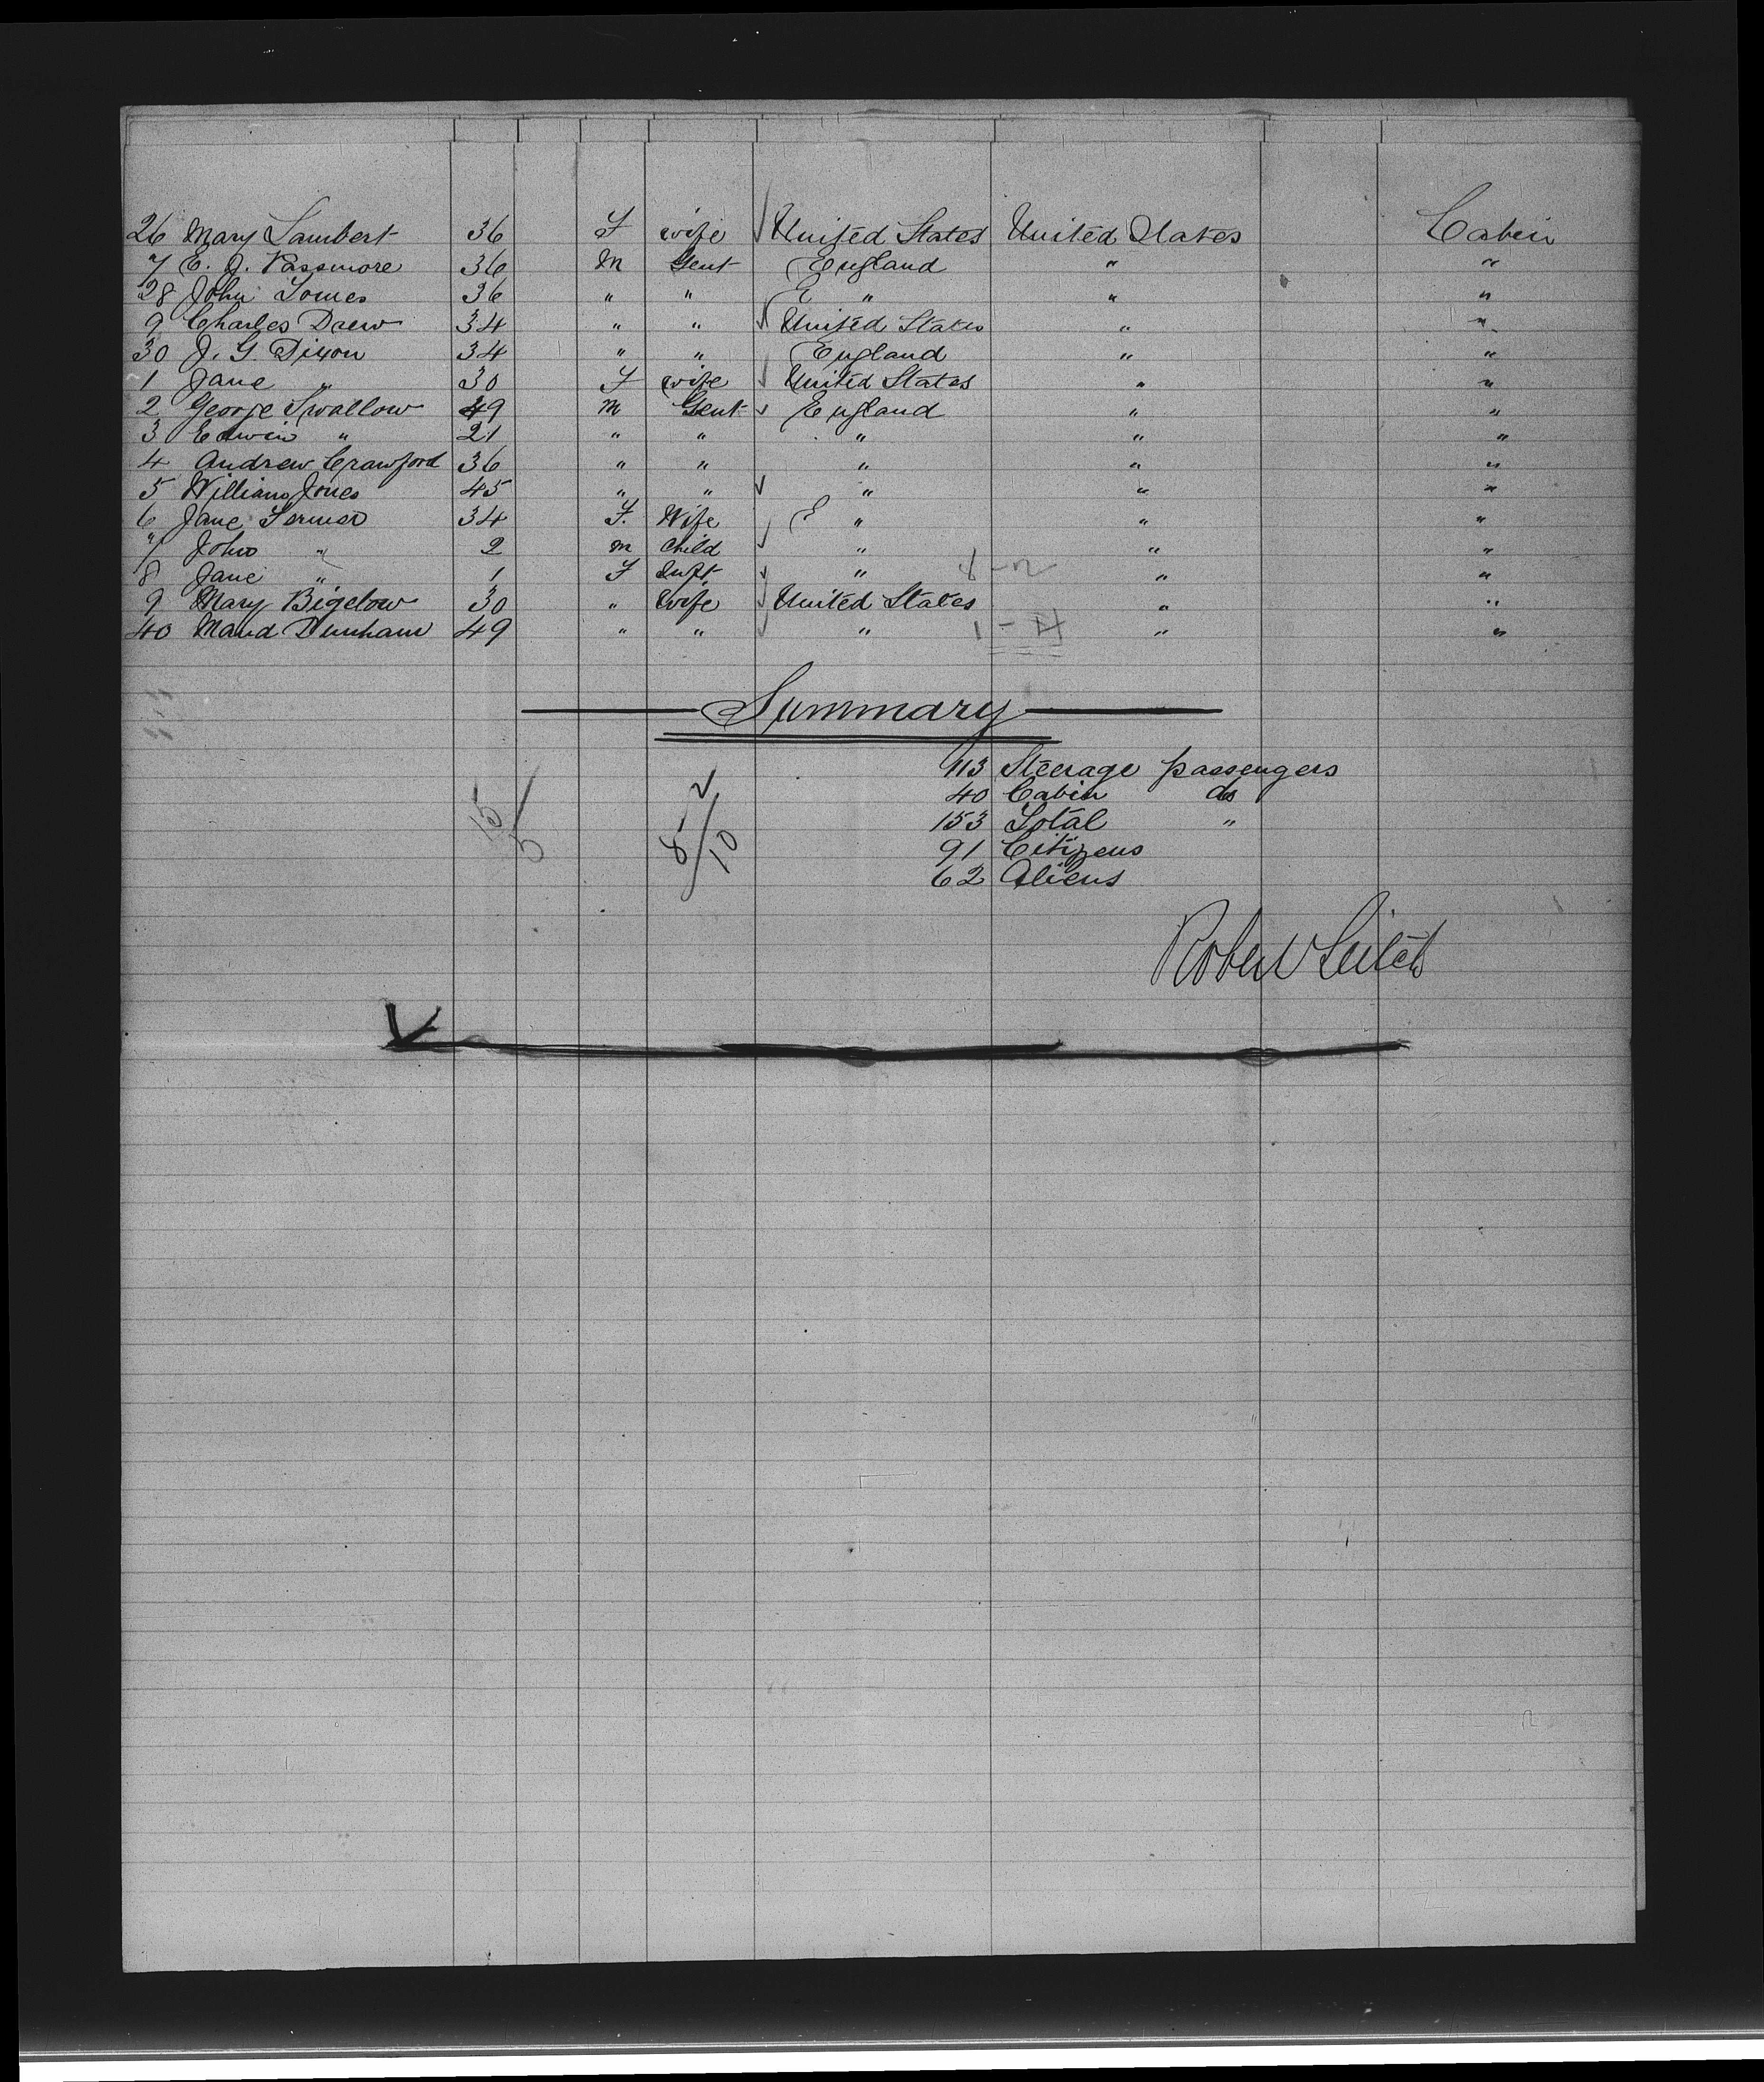 26 Mary Lambert 36 F wife United States United States Cabin
7 E. J. Passmore 36 M Gent England " "
28 John Tomes 36 " " E " " "
9 Charles Drew 34 " " United States " "
30 J. G. Dixon 34 " " England " "
1 Jane " 30 F wife United States " "
2 George Swallow 49 M Gent England " "
3 Edwin " 21 " " " " "
4 Andrew Crawford 36 " " " " "
5 William Jones 45 " " " " "
6 Jane 34 F. Wife E " " "
7 John " 2 M Child " " "
8 Jane " 1 F Inft " " "
9 Mary Bigelow 30 " Wife United States " "
40 Maud Dunham 49 " " " " "
Summary
113 Steerage passengers
40 Cabin do
153 Total "
91 Citizens
62 Aliens
Robert Leitch